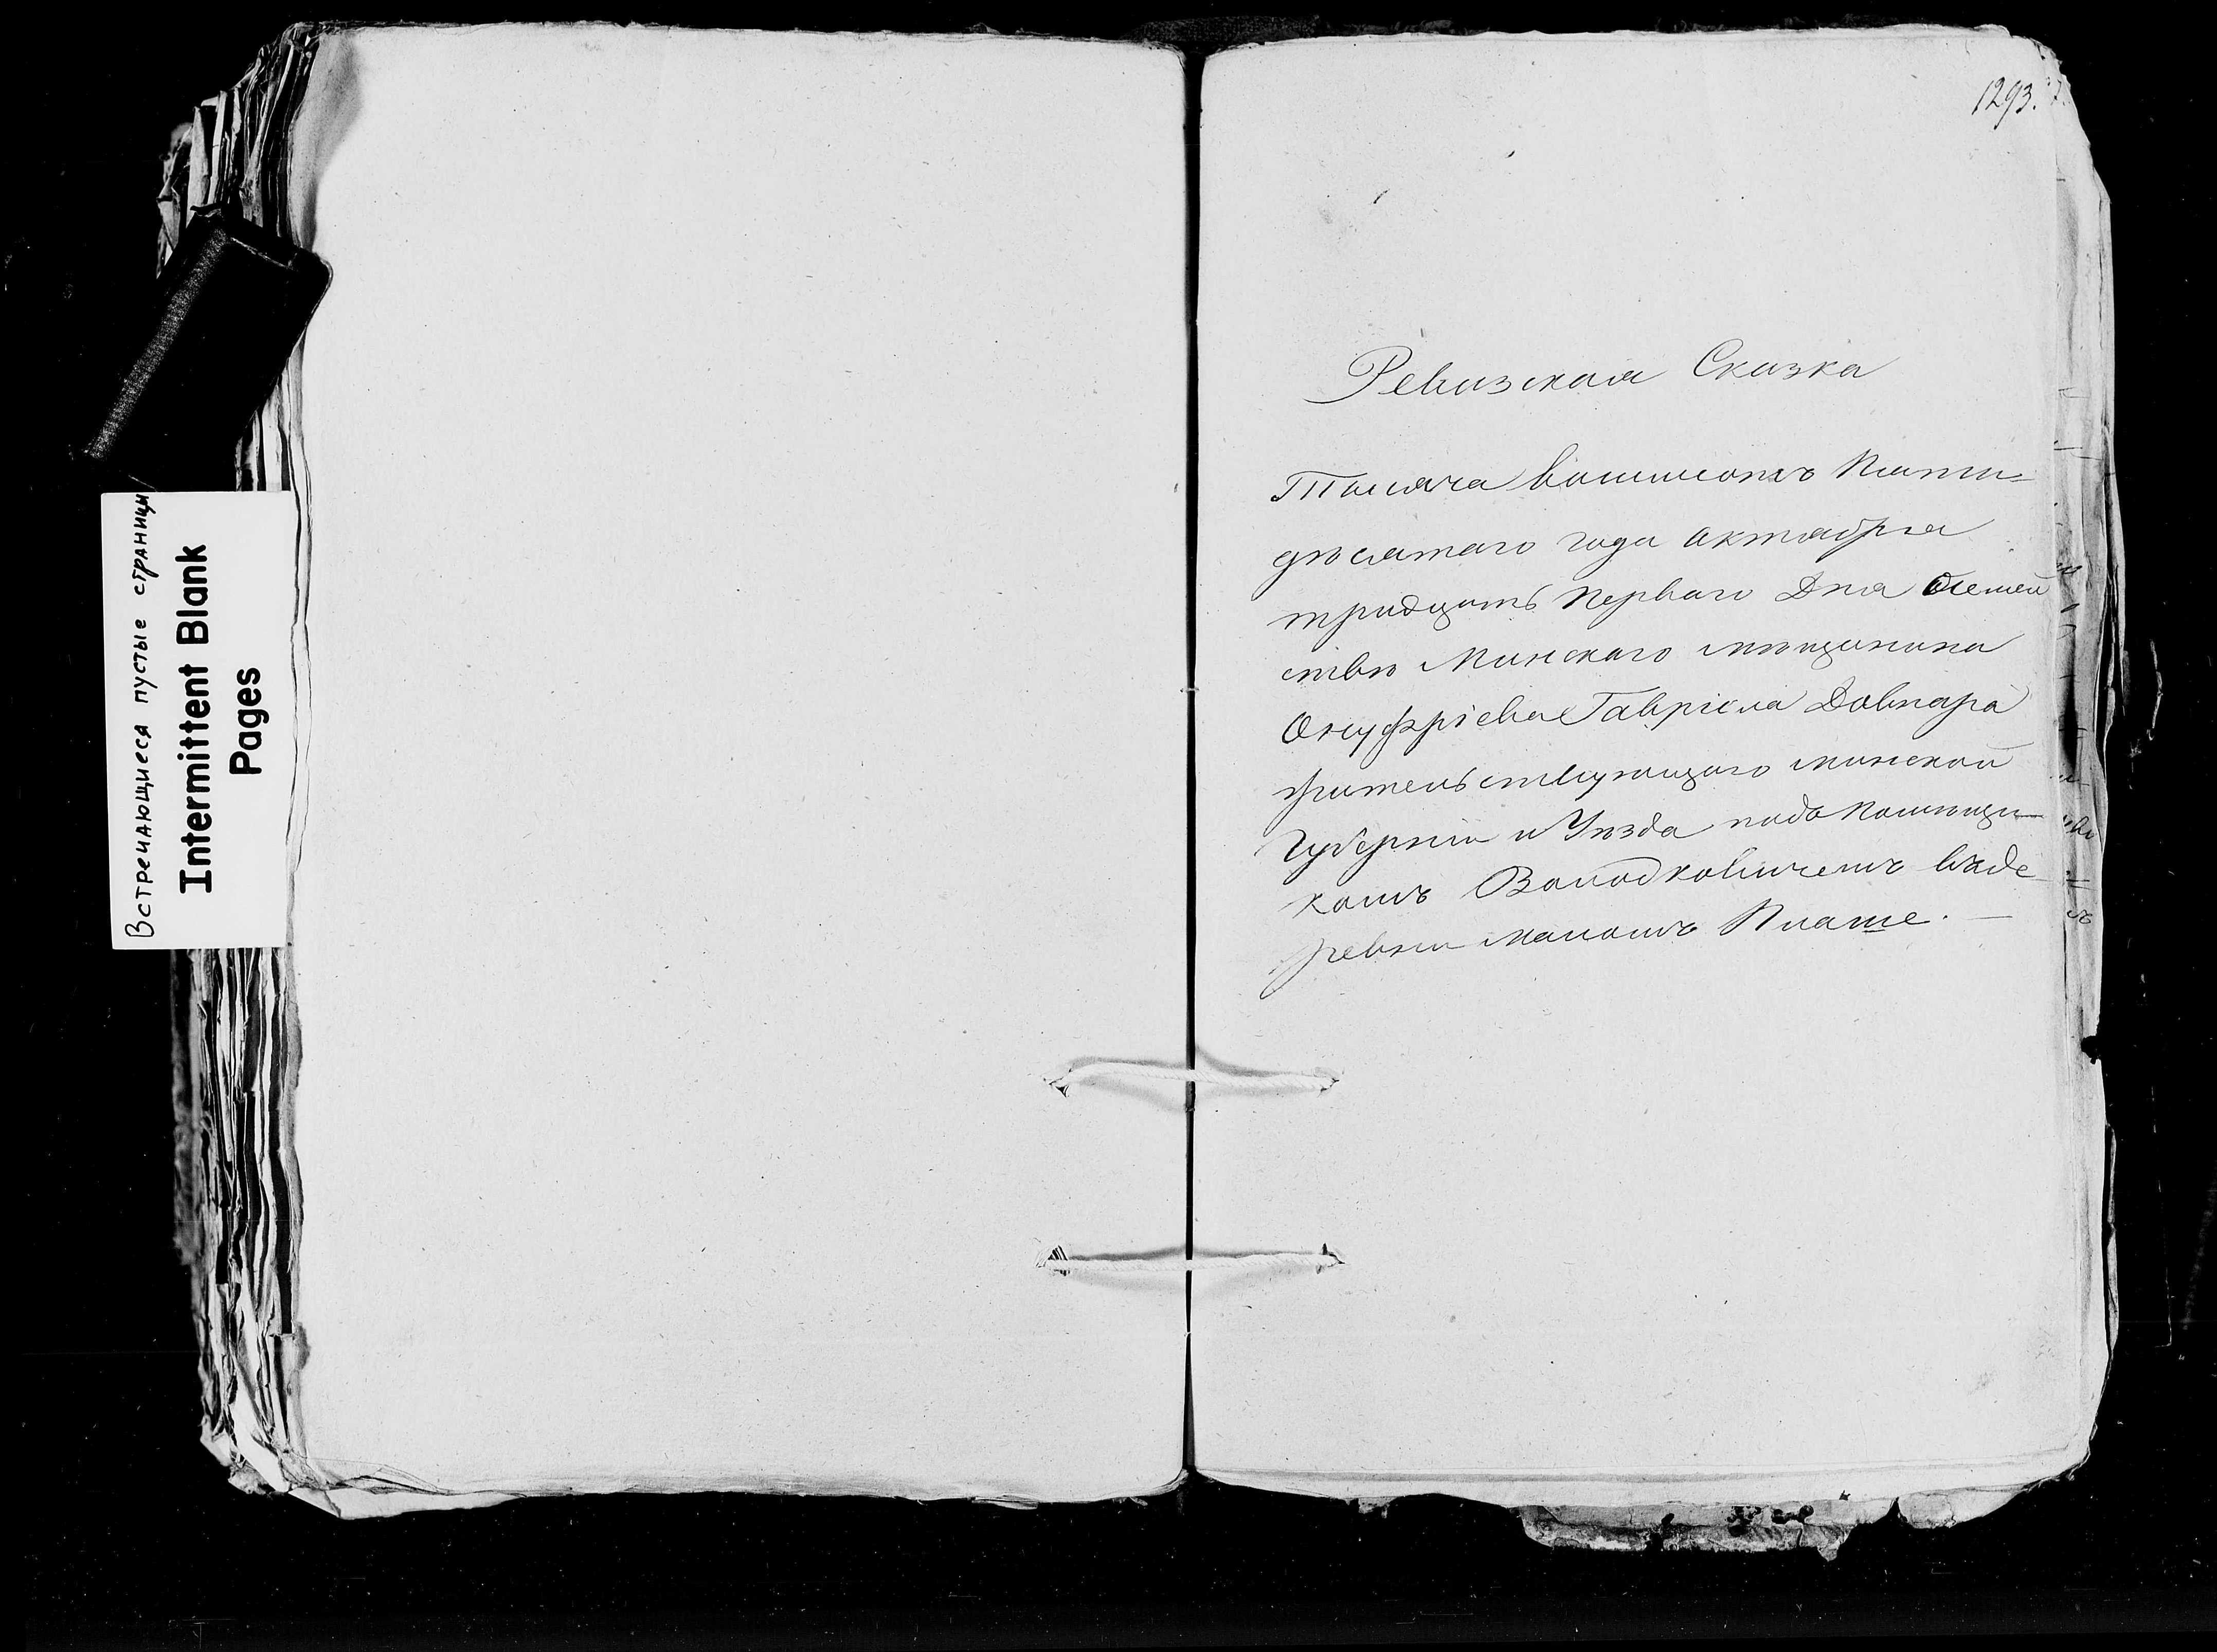 Встречающиеся пустые страницы
Intermittent Blank
Pages
1293.
Ревизская Сказка
Тысяча восимсотъ Пяти=
дѣсятаго года октября
тридцать Первого Дня о семей
ствѣ Минскаго мѣщанина
Онуфрiева Гаврiела Довнара
жительствующаго минской
Губернiи и Уѣзда подъ помѣщи
комъ Володковичемъ въ де
ревни маломъ Плаше. —